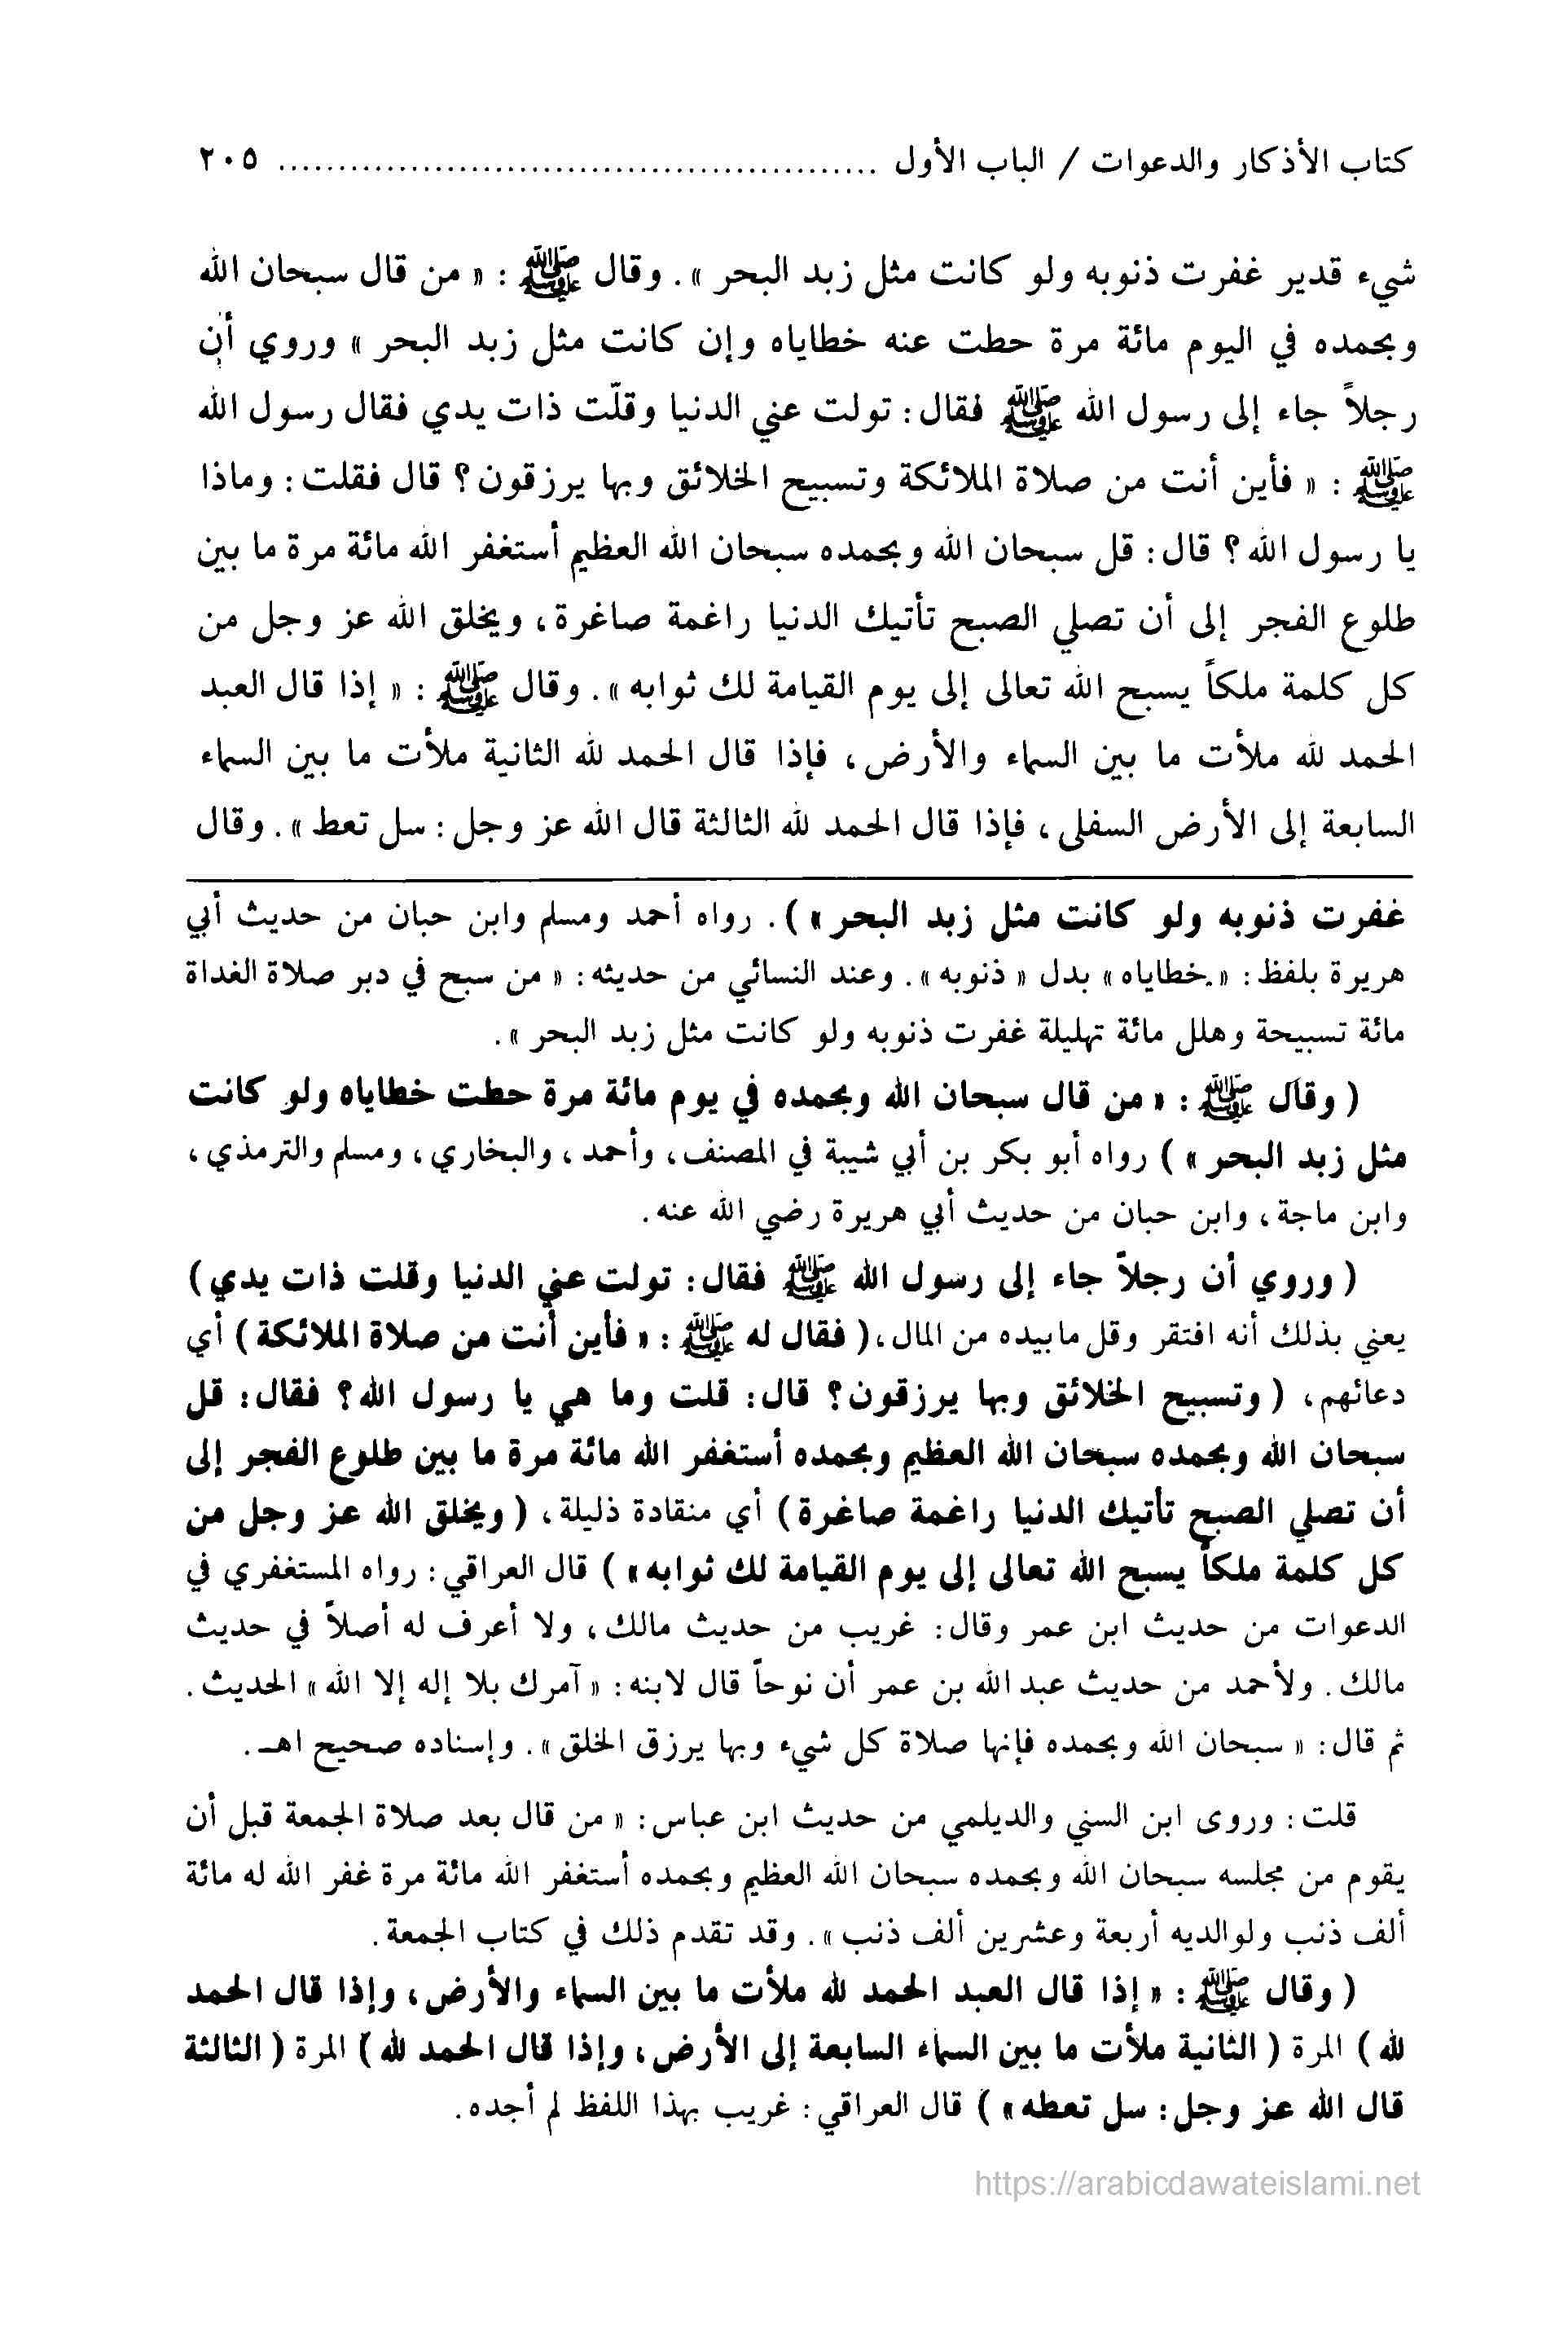 كتاب الأذكار والدعوات / الباب الأول ................................................ ٢٠٥
شيء قدير غفرت ذنوبه ولو كانت مثل زبد البحر ». وقال ﷺ : « من قال سبحان الله
وبحمده في اليوم مائة مرة حطت عنه خطاياه وإن كانت مثل زبد البحر » وروي أن
رجلاً جاء إلى رسول الله ﷺ فقال: تولت عني الدنيا وقلّت ذات يدي فقال رسول الله
ﷺ : « فأين أنت من صلاة الملائكة وتسبيح الخلائق وبها يرزقون؟ قال فقلت: وماذا
يا رسول الله؟ قال: قل سبحان الله وبحمده سبحان الله العظيم أستغفر الله مائة مرة ما بين
طلوع الفجر إلى أن تصلي الصبح تأتيك الدنيا راغمة صاغرة، ويخلق الله عز وجل من
كل كلمة ملكاً يسبح الله تعالى إلى يوم القيامة لك ثوابه ». وقال ﷺ : « إذا قال العبد
الحمد لله ملأت ما بين السماء والأرض، فإذا قال الحمد لله الثانية ملأت ما بين السماء
السابعة إلى الأرض السفلى، فإذا قال الحمد لله الثالثة قال الله عز وجل: سل تعط ». وقال
غفرت ذنوبه ولو كانت مثل زبد البحر » ). رواه أحمد ومسلم وابن حبان من حديث أبي
هريرة بلفظ: « خطاياه » بدل « ذنوبه ». وعند النسائي من حديثه: « من سبح في دبر صلاة الغداة
مائة تسبيحة وهلل مائة تهليلة غفرت ذنوبه ولو كانت مثل زبد البحر ».
( وقال ﷺ : « من قال سبحان الله وبحمده في يوم مائة مرة حطت خطاياه ولو كانت
مثل زبد البحر » ) رواه أبو بكر بن أبي شيبة في المصنف، وأحمد، والبخاري، ومسلم والترمذي،
وابن ماجة، وابن حبان من حديث أبي هريرة رضي الله عنه.
( وروي أن رجلاً جاء إلى رسول الله ﷺ فقال: تولت عني الدنيا وقلت ذات يدي )
يعني بذلك أنه افتقر وقل ما بيده من المال، ( فقال له ﷺ : « فأين أنت من صلاة الملائكة ) أي
دعائهم، ( وتسبيح الخلائق وبها يرزقون؟ قال: قلت وما هي يا رسول الله؟ فقال: قل
سبحان الله وبحمده سبحان الله العظيم وبحمده أستغفر الله مائة مرة ما بين طلوع الفجر إلى
أن تصلي الصبح تأتيك الدنيا راغمة صاغرة ) أي منقادة ذليلة، ( ويخلق الله عز وجل من
كل كلمة ملكاً يسبح الله تعالى إلى يوم القيامة لك ثوابه » ) قال العراقي: رواه المستغفري في
الدعوات من حديث ابن عمر وقال: غريب من حديث مالك، ولا أعرف له أصلاً في حديث
مالك. ولأحمد من حديث عبد الله بن عمر أن نوحاً قال لابنه: « آمرك بلا إله إلا الله » الحديث.
ثم قال: « سبحان الله وبحمده فإنها صلاة كل شيء وبها يرزق الخلق ». وإسناده صحيح اهـ.
قلت: وروى ابن السني والديلمي من حديث ابن عباس: « من قال بعد صلاة الجمعة قبل أن
يقوم من مجلسه سبحان الله وبحمده سبحان الله العظيم وبحمده أستغفر الله مائة مرة غفر الله له مائة
ألف ذنب ولوالديه أربعة وعشرين ألف ذنب ». وقد تقدم ذلك في كتاب الجمعة.
( وقال ﷺ : « إذا قال العبد الحمد لله ملأت ما بين السماء والأرض، وإذا قال الحمد
لله ) المرة ( الثانية ملأت ما بين السماء السابعة إلى الأرض، وإذا قال الحمد لله ) المرة ( الثالثة
قال الله عز وجل: سل تعطه » ) قال العراقي: غريب بهذا اللفظ لم أجده.
https://arabicdawateislami.net